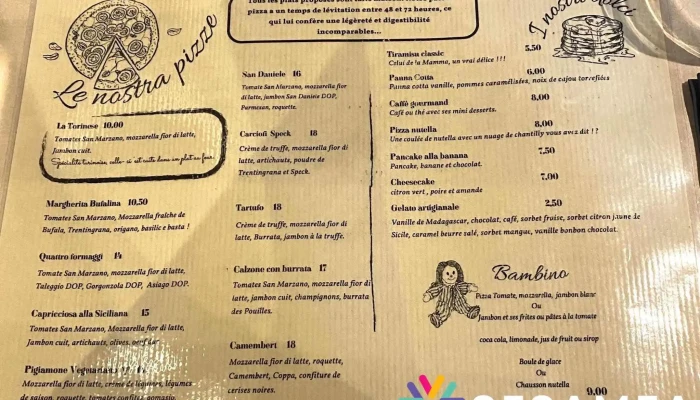 pizza a un temps de lévitation entre 48 et 72 heures, ce
qui lui confère une légèreté et digestibilité
incomparables...
Le nostra pizze
La Torinese 10.00
Tomates San Marzano, mozzarella fior di latte,
Jambon cuit.
Spécialité turinoise, celle-ci est cuite dans un plat au four.
Margherita Bufalina 10,50
Tomates San Marzano, Mozzarella fraîche de
Bufala, Trentingrana, origano, basilic e basta !
Quattro formaggi 14
Tomate San Marzano, mozzarella fior di latte,
Taleggio DOP, Gorgonzola DOP, Asiago DOP.
Capricciosa alla Siciliana 15
Tomates San Marzano, Mozzarella fior di latte,
Jambon cuit, artichauts, olives, oeuf dur
Pigiamone Vegetariana
Mozzarella fior di latte, crème de légumes, légumes
de saison, roquette, tomates confites, gomasio.
San Daniele 16
Tomate San Marzano, mozzarella fior
di latte, jambon San Daniele DOP,
Parmesan, roquette.
Carciofi Speck 18
Crème de truffe, mozzarella fior di
latte, artichauts, poudre de
Trentingrana et Speck.
Tartufo 18
Crème de truffe, mozzarella fior di
latte, Burrata, jambon à la truffe.
Calzone con burrata 17
Tomate San Marzano, mozzarella fior di
latte, jambon cuit, champignons, burrata
des Pouilles.
Camembert 18
Mozzarella fior di latte, roquette,
Camembert, Coppa, confiture de
cerises noires.
I nostri dolci
Tiramisu classic 5.50
Celui de la Mamma, un vrai délice !!!
Panna Cotta 6,00
Panna cotta vanille, pommes caramélisées, noix de cajou torréfiées
Caffè gourmand 8,00
Café ou thé avec ses mini desserts.
Pizza nutella 8,00
Une coulée de nutella avec un nuage de chantilly vous avez dit ! ?
Pancake alla banana 7,50
Pancake, banane et chocolat.
Cheesecake 7,00
citron vert, poire et amande
Gelato artigianale 2,50
Vanille de Madagascar, chocolat, café, sorbet fraise, sorbet citron jaune de
Sicile, caramel beurre salé, sorbet mangue, vanille bonbon chocolat.
Bambino
Pizza Tomate, mozzarilla, jambon blanc
Ou
Jambon et ses frites ou pâtes à la tomate
coca cola, limonade, jus de fruit ou sirop
Boule de glace
Ou
Chausson nutella
9,00